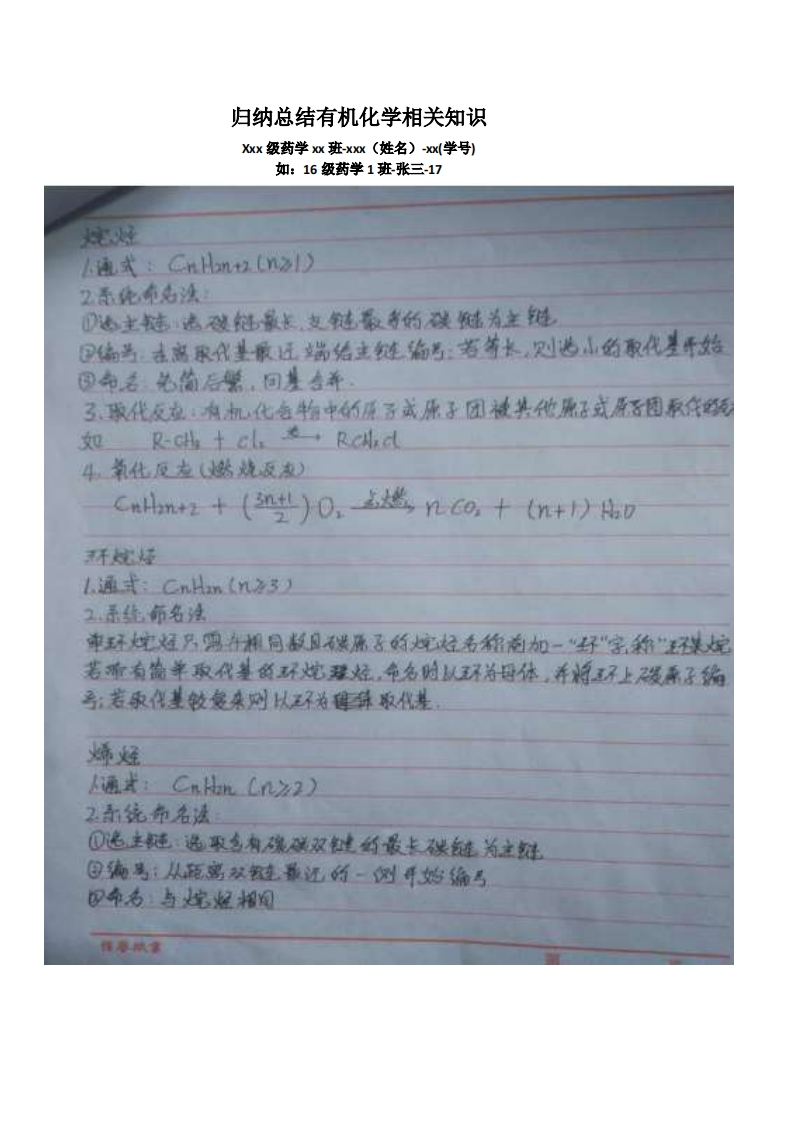 归纳总结有机化学相关知识
Xxx 级药学 xx 班-xxx（姓名）-xx(学号)
如：16 级药学 1 班-张三-17
烷烃
1.通式：CnH2n+2(n≥1)
2.系统命名法：
①选主链：选碳链最长、支链最多的碳链为主链
②编号：去离取代基最近端给主链编号；若等长，则选小的取代基开始
③命名：先简后繁，同基合并.
3.取代反应：有机化合物中的原子或原子团被其他原子或原子团取代的
如 R-CH3 + Cl2 光→ RCH2Cl
4.氧化反应(燃烧反应)
CnH2n+2 + (3n+1/2)O2 点燃→ nCO2 + (n+1)H2O
环烷烃
1.通式：CnH2n(n≥3)
2.系统命名法
单环烷烃只需在相同数目碳原子的烷烃名称前加一"环"字,称"环某烷
若带有简单取代基的环烷烃,命名时以环为母体,并将环上碳原子编
号;若取代基较复杂则以环为取代基.
烯烃
1.通式：CnH2n (n≥2)
2.系统命名法：
①选主链：选取含有碳碳双键的最长碳链为主链
②编号：从距离双键最近的一侧开始编号
③命名：与烷烃相同